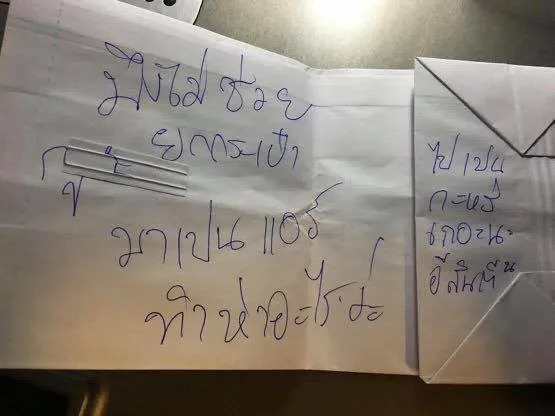 มึงไม่ช่วย
ยกกระเป๋า
กู
มาเปนแอร์
ทำห่าอะไรว่ะ
ไปเปน
กะหรี่
เถอะนะ
อีส้นตีน